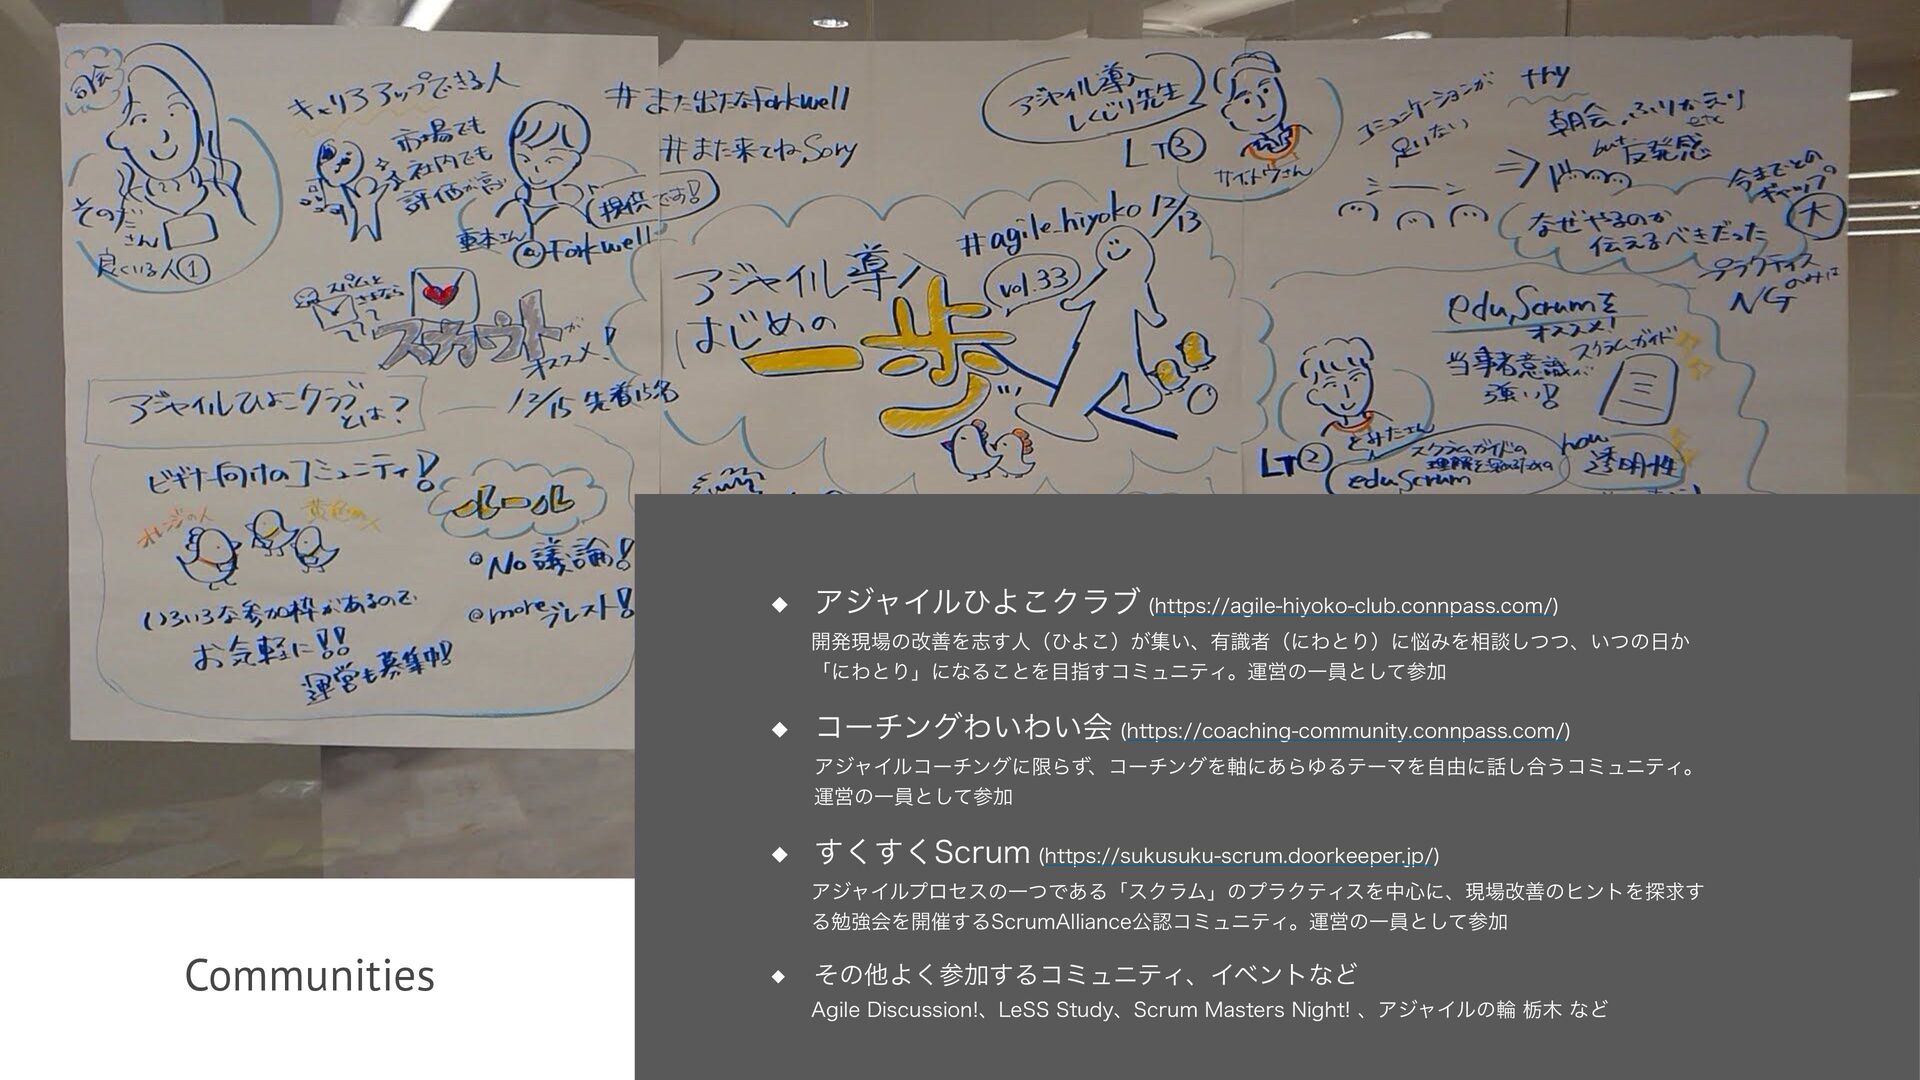 司会
そのださん
良くいる人①
キャリアアップできる人
市場でも
社内でも
評価が高い
重本さん
提供です!
@Forkwell
スパムと
さよなら
スカウトが
オススメ!
12/15 先着15名
アジャイルひよこクラブ
とは?
ビギナー向けのコミュニティ!
オレンジの人
黄色の人
いろいろな参加枠があるので
お気軽に!!
運営も募集中!
ルール
No 議論!
more ブレスト!
#また出たなForkwell
#また来てね,Sory
#agile_hiyoko 12/13
vol.33
アジャイル導入
はじめの
一歩
アジャイル導入
しくじり先生
LT③
サイトウさん
コミュニケーションが
足りない
try
朝会、ふりかえり
etc
but 反発感
今までとの
ギャップ
大
なぜやるのか
伝えるべきだった
プラクティス
のみは
NG
eduScrumを
オススメ!
当事者意識が
強い!
スクラムガイド
とみたさん
LT②
スクラムガイドの
理解を深めるための
eduScrum
how
透明性
◆ アジャイルひよこクラブ (https://agile-hiyoko-club.connpass.com/)
開発現場の改善を志す人（ひよこ）が集い、有識者（にわとり）に悩みを相談しつつ、いつの日か
「にわとり」になることを目指すコミュニティ。運営の一員として参加
◆ コーチングわいわい会 (https://coaching-community.connpass.com/)
アジャイルコーチングに限らず、コーチングを軸にあらゆるテーマを自由に話し合うコミュニティ。
運営の一員として参加
◆ すくすくScrum (https://sukusuku-scrum.doorkeeper.jp/)
アジャイルプロセスの一つである「スクラム」のプラクティスを中心に、現場改善のヒントを探求す
る勉強会を開催するScrumAlliance公認コミュニティ。運営の一員として参加
◆ その他よく参加するコミュニティ、イベントなど
Agile Discussion!、LeSS Study、Scrum Masters Night! 、アジャイルの輪 栃木 など
Communities